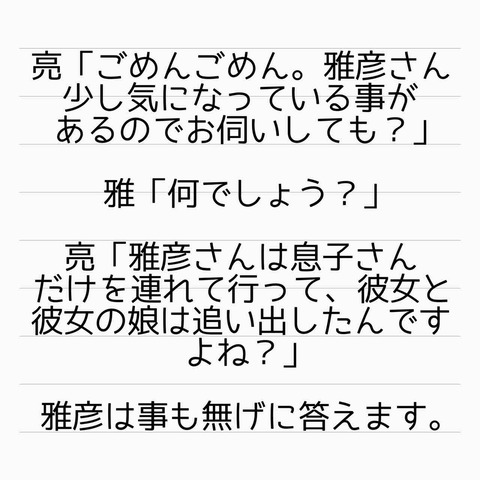 亮「ごめんごめん。雅彦さん
少し気になっている事が
あるのでお伺いしても？」
雅「何でしょう？」
亮「雅彦さんは息子さん
だけを連れて行って、彼女と
彼女の娘は追い出したんです
よね？」
雅彦は事も無げに答えます。